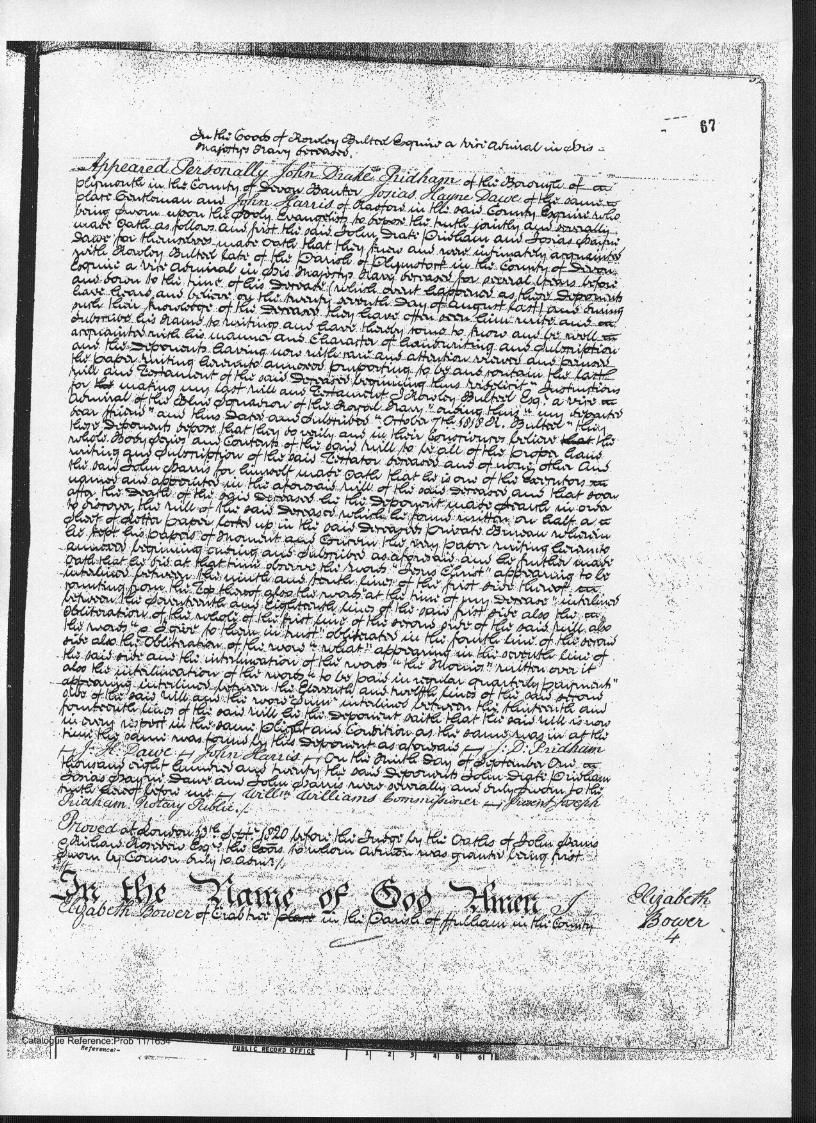 67
In the Goods of Rowley Bulteel Esquire a Vice Admiral in His
Majestys Navy deceased.
Appeared Personally John Drake Pridham of the Borough of
plymouth in the County of Devon Banker Josias Hayne Dawe of the same
place Gentleman and John Harris of Radford in the said County Esquire who
being sworn upon the Holy Evangelists to depose the truth jointly and severally
made Oath as follows and first the said John Drake Pridham and Josias Hayne
Dawe for themselves made Oath that they knew and were intimately acquainted
with Rowley Bulteel late of the Parish of Plymstock in the County of Devon
Esquire a Vice Admiral in His Majestys Navy deceased for several years before
and down to the time of his decease (which event happened as these Deponents
have heard and believe on the twenty seventh Day of August last) and during
such their knowledge of the deceased they have often seen him write and
subscribe his Name to writings and have thereby come to know and be well
acquainted with his manner and Character of handwriting and subscription
and the Deponents having now with care and attention viewed and perused
the paper writing hereunto annexed purporting to be and contain the last
will and Testament of the said deceased beginning thus "Instructions
for making my last will and Testament I Rowley Bulteel Esqr. a Vice
Admiral of the Blue Squadron of the Royal Navy" ending thus "my departed
dear friend" and thus dated and subscribed "October 7th 1818 R. Bulteel" they
these Deponents depose that they do verily and in their Consciences believe that the
whole Body Series and Contents of the said will to be all of the proper hand
writing and subscription of the said Testator deceased and of none other And
the said John Harris for himself made Oath that he is one of the executors
named and appointed in the aforesaid will of the said deceased and that soon
after the Death of the said deceased he the Deponent made search in order
to discover the will of the said deceased which he found written on half a
sheet of letter paper locked up in the said deceaseds private Bureau wherein
he kept his papers of Moment and Concern the very paper writing hereunto
annexed beginning ending and subscribed as aforesaid and he further made
Oath that he did at that time observe the words "Jesus Christ" appearing to be
interlined between the ninth and tenth lines of the first side thereof
counting from the Top thereof also the words "at the time of my decease" interlined
between the seventeenth and Eighteenth lines of the said first side also the
Obliteration of the whole of the first line of the second side of the said will also
the words "I give to them in trust" obliterated in the fourth line of the second
side also the Obliteration of the word "what" appearing in the seventh line of
the said side and the interlineation of the words "the Monies" written over it
also the interlineation of the words "to be paid in regular quarterly payment"
appearing interlined between the Eleventh and twelfth lines of the said second
side of the said will and the word "sum" interlined between the thirteenth and
fourteenth lines of the said will he the deponent saith that the said will is now
in every respect in the same plight and Condition as the same was in at the
time the same was found by this Deponent as aforesaid J. H. Dawe John Harris J. D. Pridham
On the Ninth Day of September One
thousand eight hundred and twenty the said Deponents John Drake Pridham
Josias Hayne Dawe and John Harris were severally and duly sworn to the
truth hereof before me Willm. Williams Commissioner present Joseph
Pridham Notary Public
Proved at London 13th Septr. 1820 before the Judge by the Oaths of John Harris
Esqrs. the to whom Admon was granted being first
sworn by Common duly to Admr.
In the Name of God Amen I
Elizabeth Bower of in the Parish of in the County
Elizabeth
Bower
4
Catalogue Reference:Prob 11/1634
Reference:-
PUBLIC RECORD OFFICE
1 2 3 4 5 6